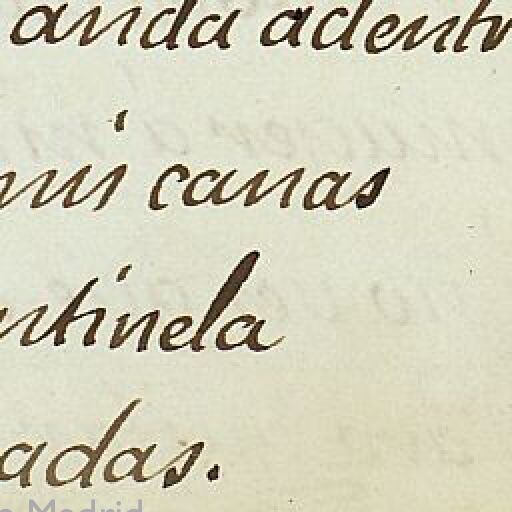 anda adentr
mis canas
ntinela
adas.
Madrid